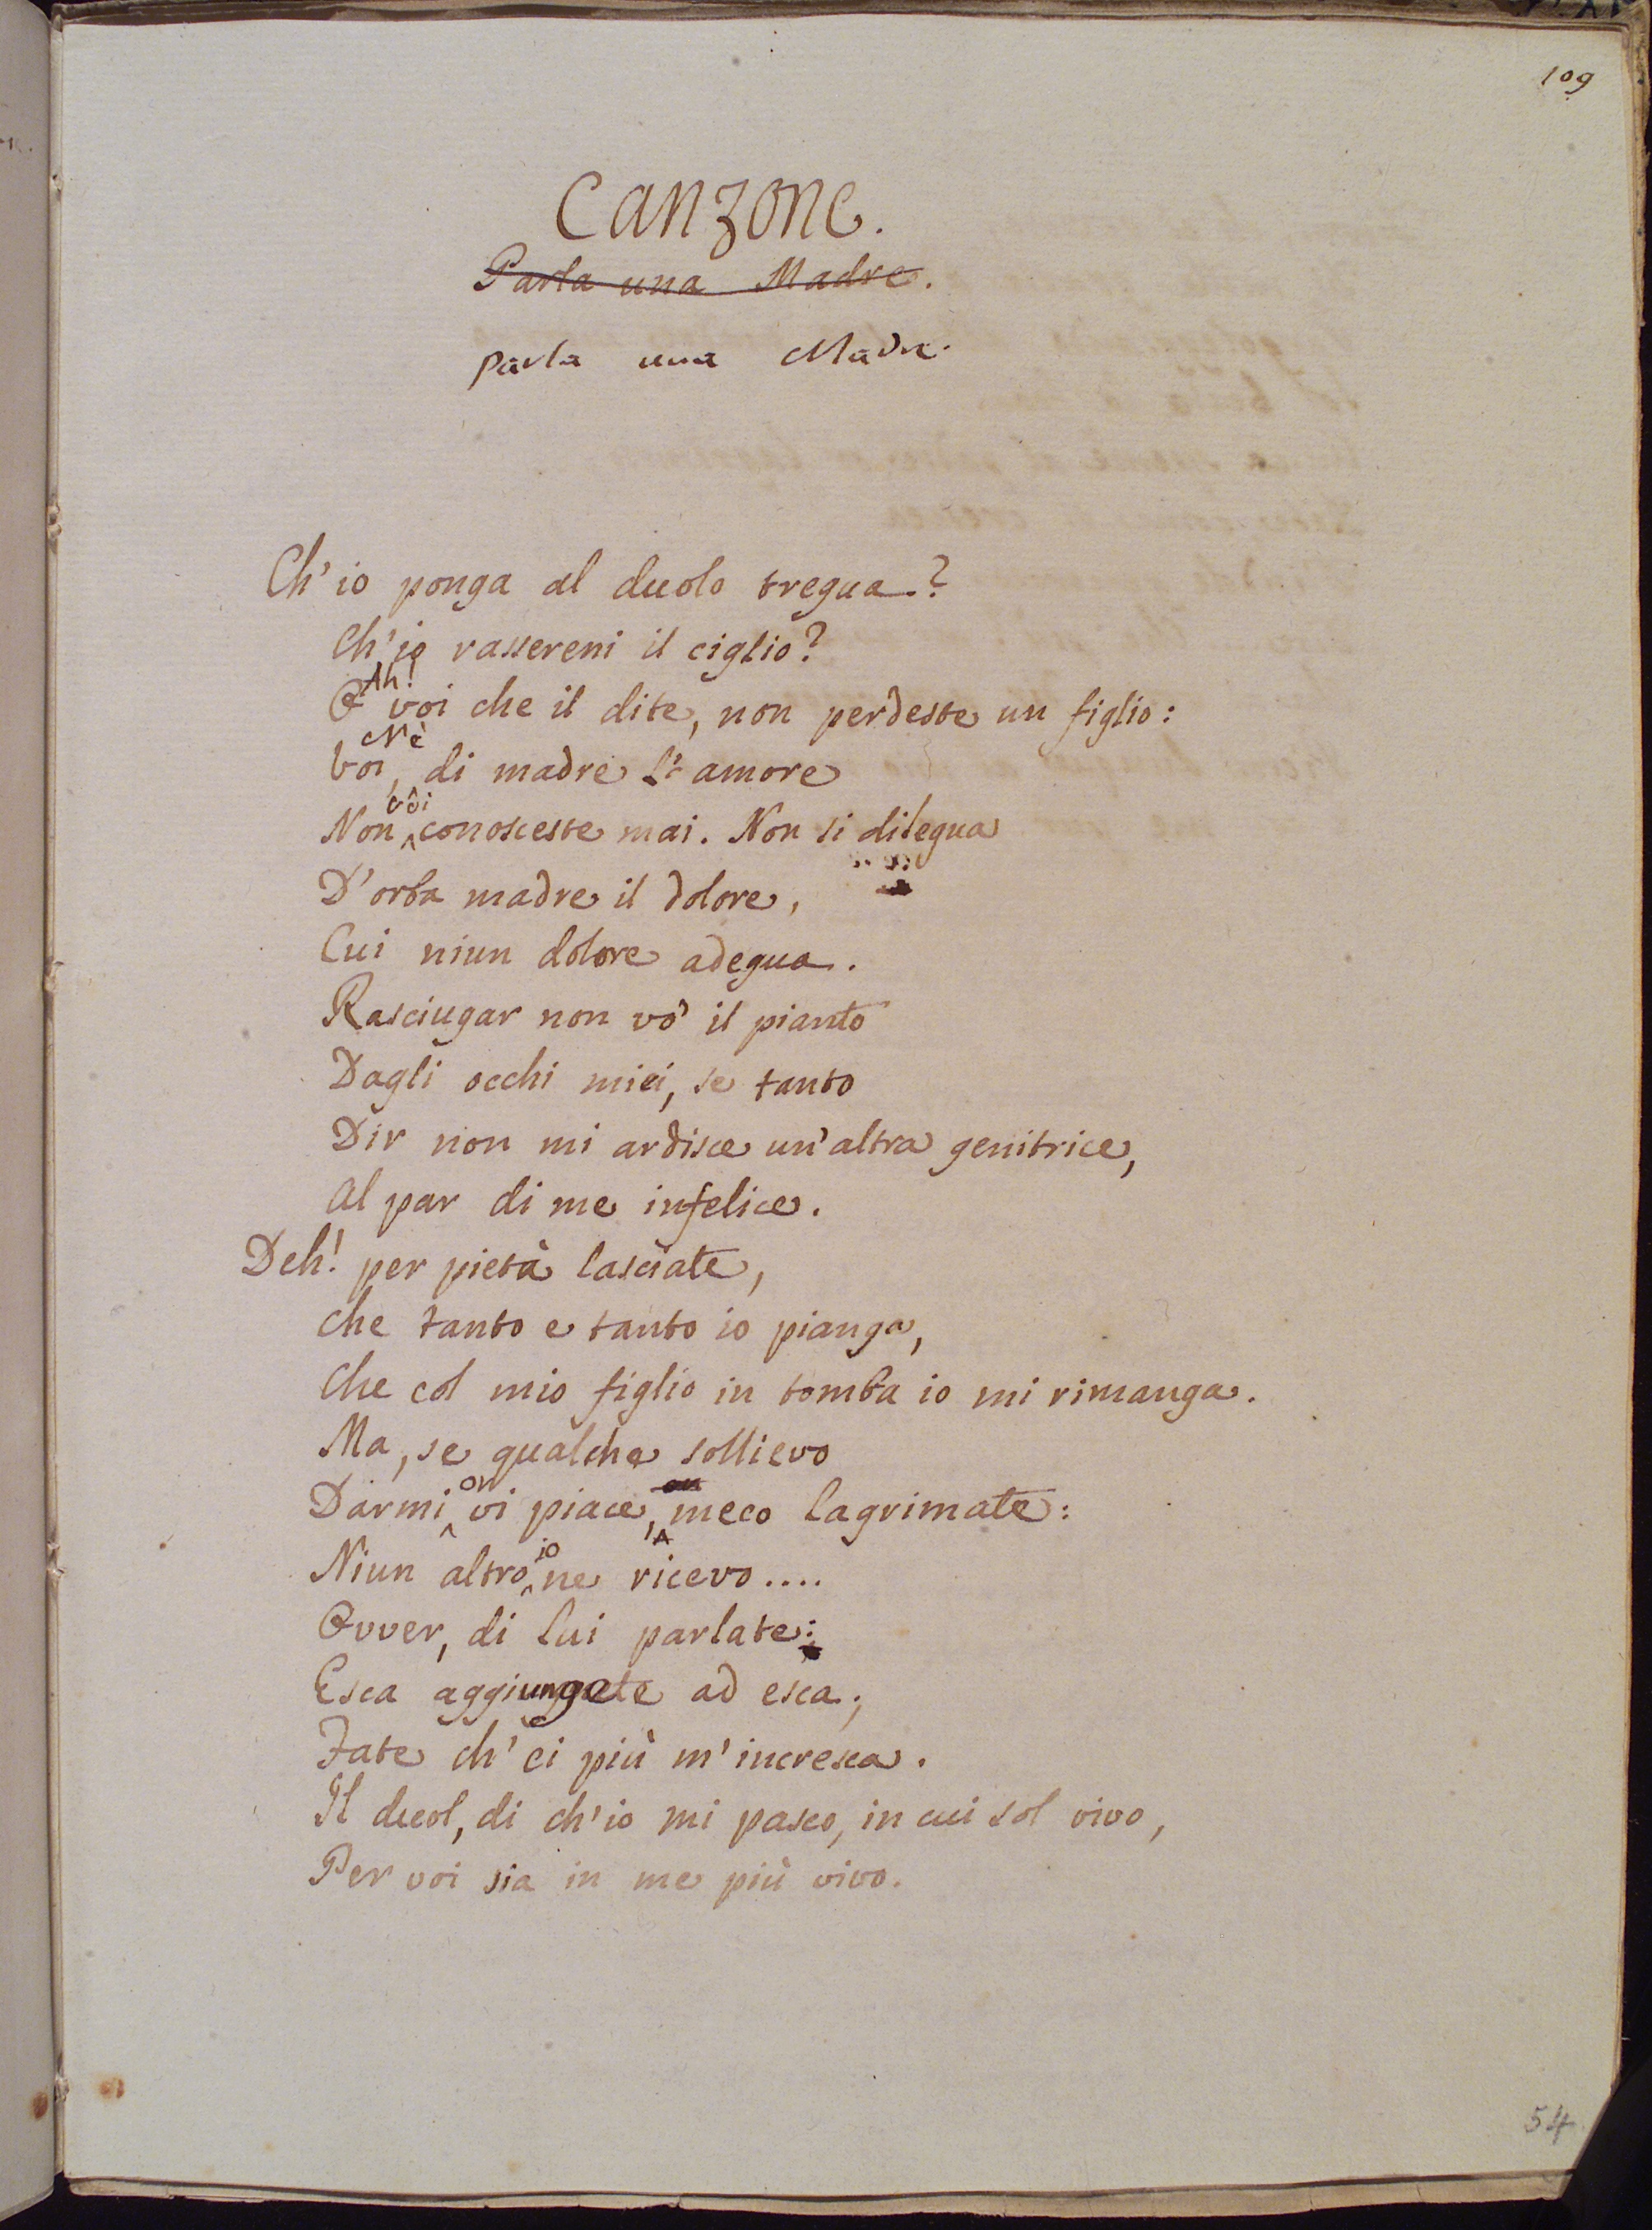 109
Canzone.
Parla una Madre.
Parla una Madre.
Ch'io ponga al duolo tregua?
Ch'io rassereni il ciglio?
Ah!
O voi che il dite, non perdeste un figlio:
Nè
Voi, di madre l'amore
voi
Non conosceste mai. Non si dilegua
D'orba madre il dolore,
Cui niun dolore adegua.
Rasciugar non vo' il pianto
Dagli occhi miei, se tanto
Dir non mi ardisce un'altra genitrice,
Al par di me infelice.
Deh! per pietà lasciate,
Che tanto e tanto io pianga,
Che col mio figlio in tomba io mi rimanga.
Ma, se qualche sollievo
or
Darmi vi piace, meco lagrimate:
io
Niun altro ne ricevo....
Ovver, di lui parlate:
Esca aggiungete ad esca;
Fate ch'ei più m'incresca.
Il duol, di ch'io mi pasco, in cui sol vivo,
Per voi sia in me più vivo.
54